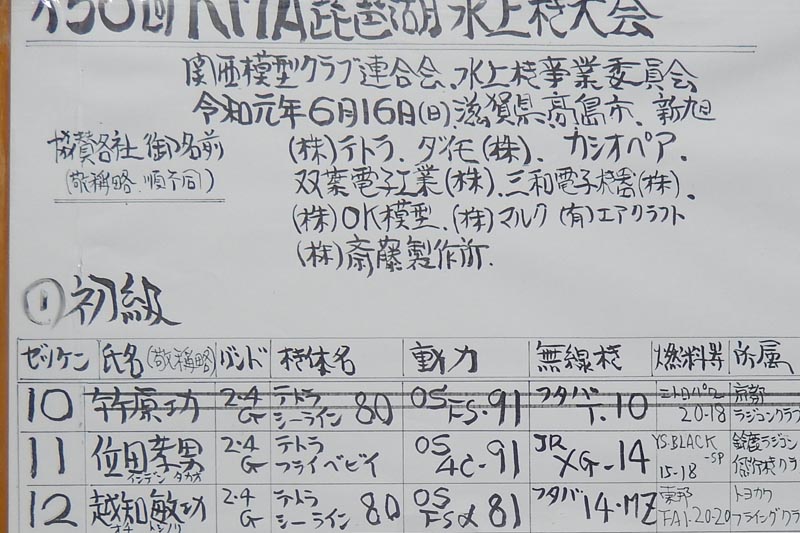 第50回KMA琵琶湖水上機大会
関西模型クラブ連合会.水上機事業委員会
令和元年6月16日(日).滋賀県高島市、新旭
協賛各社御名前 (株)テトラ、ダイモ(株)、カシオペア、
(敬称略、順不同) 双葉電子工業(株)、三和電子機器(株)、
(株)OK模型、(株)マルク (有)エアクラフト
(株)斎藤製作所.
① 初級
ゼッケン 氏名(敬称略) バンド 機体名 動力 無線機 燃料等 所属
10 竹原功 2.4G テトラ シーライン 80 OS FS・91 フタバ T.10 ニトロパワー 20-18 京都 ラジコンクラブ
11 位田孝男 インデン タカオ 2.4G テトラ フライベビイ OS 4C-91 JR XG-14 YS.BLACK-SP 15-18 鈴鹿ラジコン 模型機クラ
12 越知敏功 オチ トシノリ 2.4G テトラ シーライン 80 OS FSα81 フタバ 14・MZ 東邦 FA1・20-20 トヨカワ フライングクラ